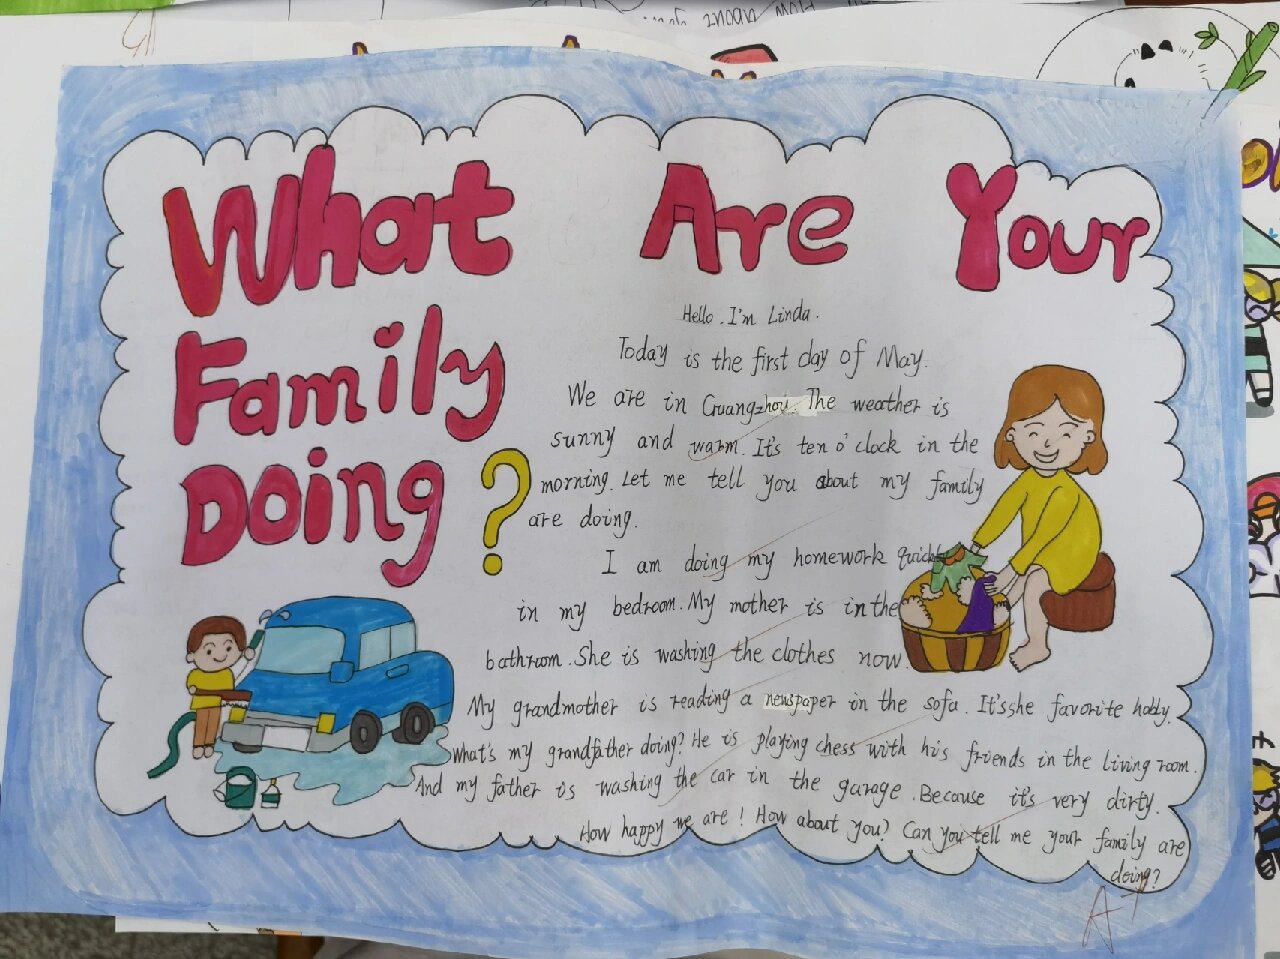 What Are Your
Family
Doing
?
Hello. I'm Linda.
Today is the first day of May.
We are in Guangzhou. The weather is
sunny and warm. It's ten o'clock in the
morning. Let me tell you about my family
are doing.
I am doing my homework quickly
in my bedroom. My mother is in the
bathroom. She is washing the clothes now.
My grandmother is reading a newspaper in the sofa. It's she favorite hobby.
What's my grandfather doing? He is playing chess with his friends in the living room.
And my father is washing the car in the garage. Because it's very dirty.
How happy we are! How about you? Can you tell me your family are
doing?
A+
How about